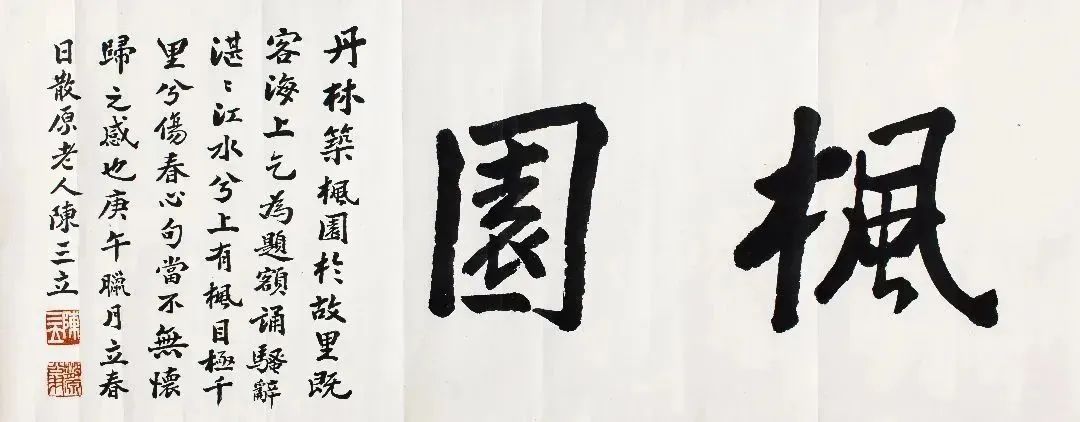 楓園
丹林築楓園於故里既
客海上乞為題額誦騷辭
湛〻江水兮上有楓目極千
里兮傷春心句當不無懷
歸之感也庚午臘月立春
日散原老人陳三立